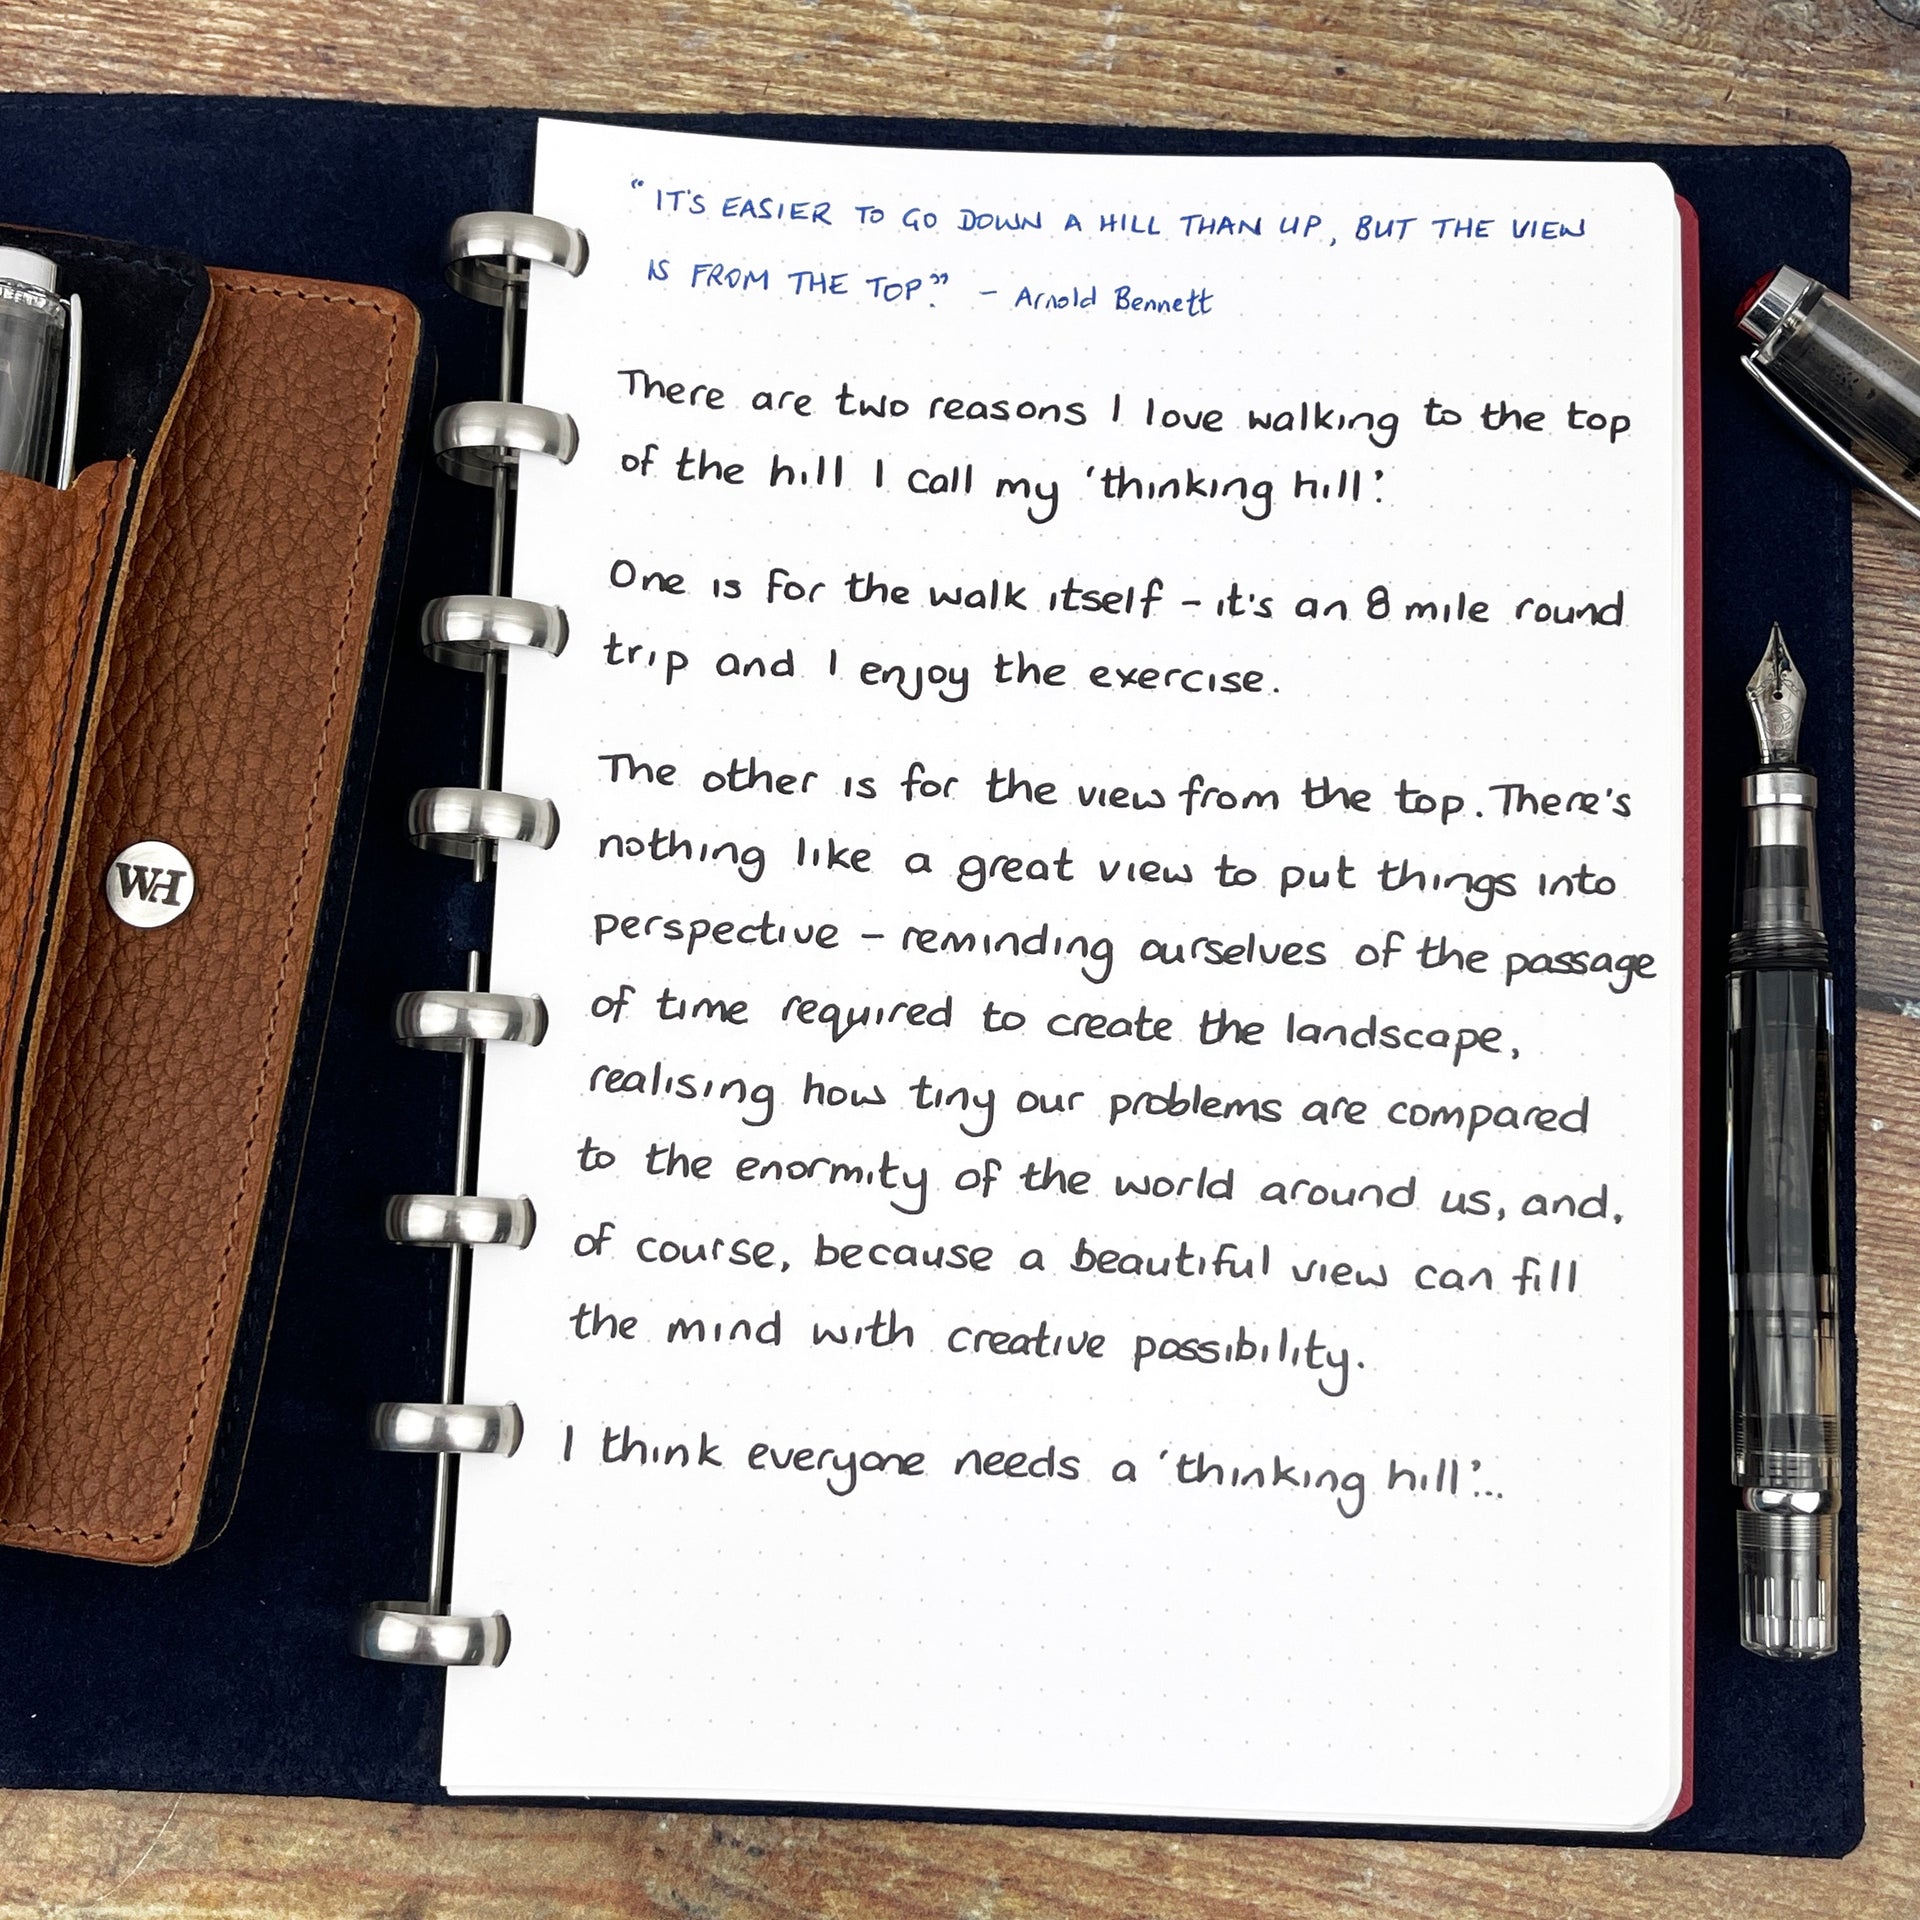 "IT'S EASIER TO GO DOWN A HILL THAN UP, BUT THE VIEW
IS FROM THE TOP." - Arnold Bennett
There are two reasons I love walking to the top
of the hill I call my 'thinking hill'.
One is for the walk itself - it's an 8 mile round
trip and I enjoy the exercise.
The other is for the view from the top. There's
nothing like a great view to put things into
perspective - reminding ourselves of the passage
of time required to create the landscape,
realising how tiny our problems are compared
to the enormity of the world around us, and,
of course, because a beautiful view can fill
the mind with creative possibility.
I think everyone needs a 'thinking hill'...
WH